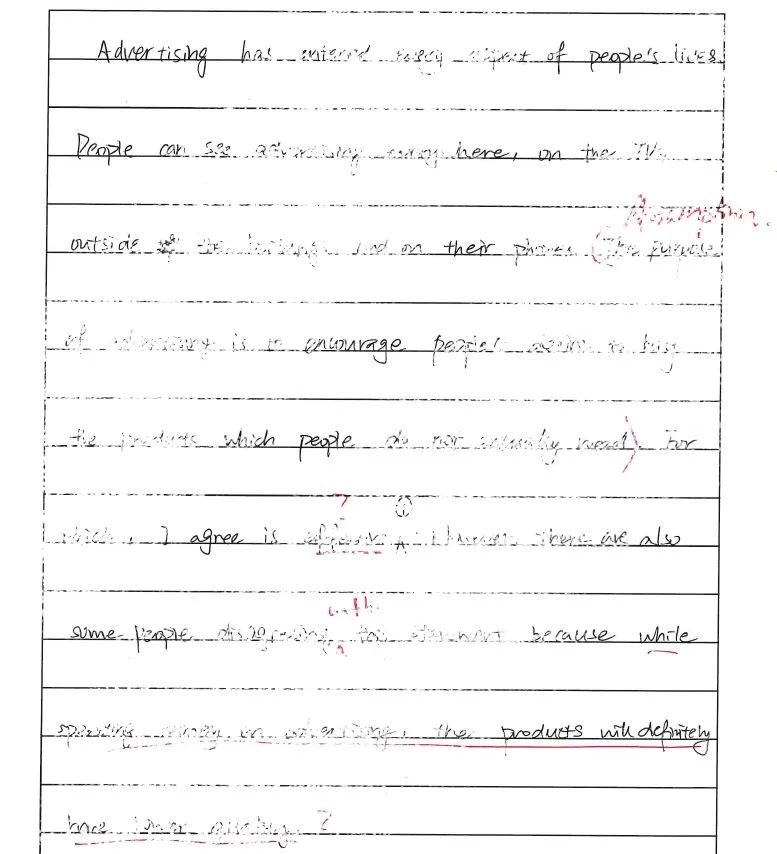 Advertising has entered every aspect of people's lives.
People can see advertising everywhere, on the TV,
Assumption.
outside of the buildings and on their phones. (The purpose
of advertising is to encourage people's desire to buy
the products which people do not actually need). For
?
which, I agree is However, there are also
with
some people disagreeing this statement because while
spending money on advertising, the products will definitely
have lower quality. ?